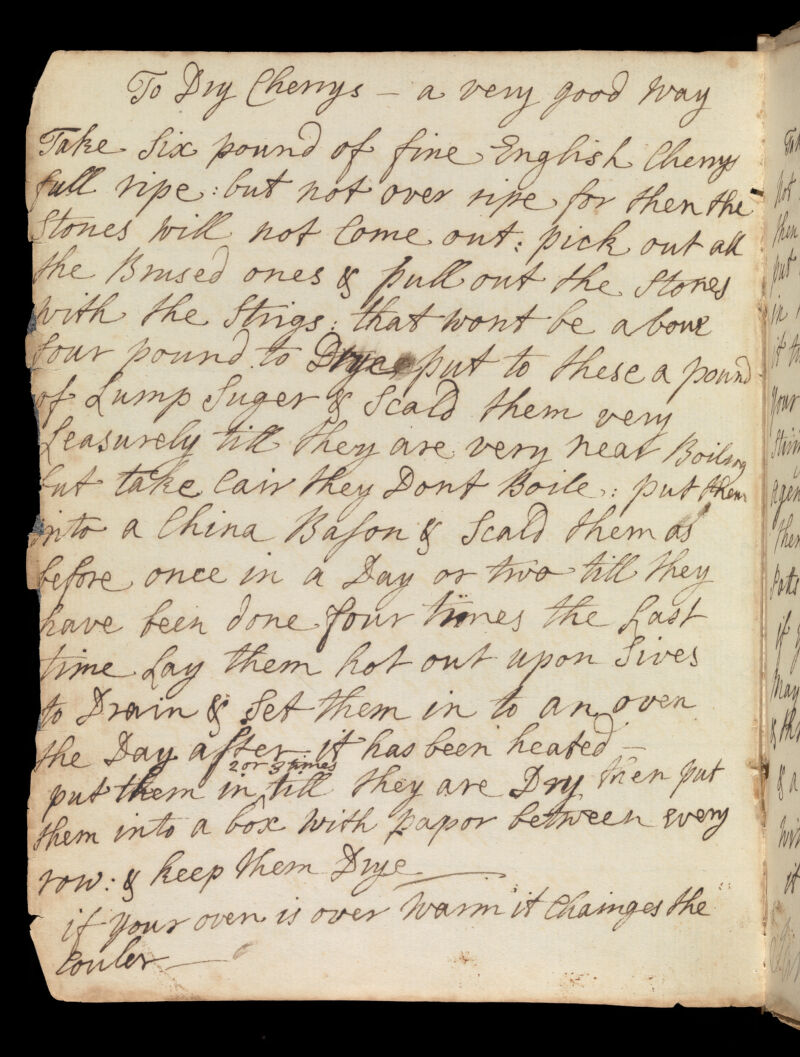 To Dry Cherrys – a very good way
Take Six pound of fine English Cherrys
full ripe: but not over ripe for then the
Stones will not Come out: pick out all
the Brused ones & pull out the Stones
with the Strigs: that wont be above
four pound to Drye put to these a pound
of Lump Suger & Scald them very
Leasurely till they are very near Boiling
but take Cair they Dont Boile: put them
into a China Bason & Scald them as
before once in a Day or two till they
have been done four times the Last
time Lay them hot out upon Sives
to Drain & Set them in to an oven
the Day after it has been heated –
2 or 3 times
put them in till they are Dry then put
them into a box with papor between every
row: & keep them Drye
if your oven is over warm it Chainges the
Couler